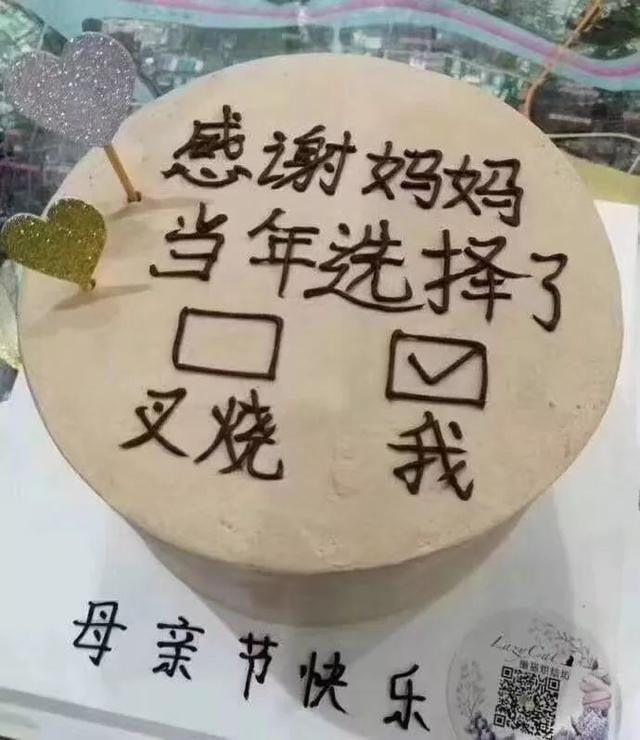 感谢妈妈
当年选择了
叉烧 我
母亲节快乐
LazyCat